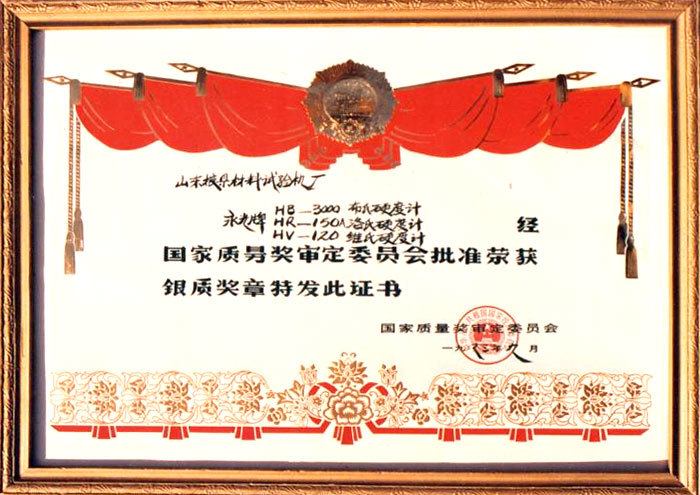 山东掖县材料试验机厂
永光牌
HB-3000 布氏硬度计
HR-150A洛氏硬度计
HV-120 维氏硬度计
经
国家质量奖审定委员会批准荣获
银质奖章特发此证书
国家质量奖审定委员会
年九月